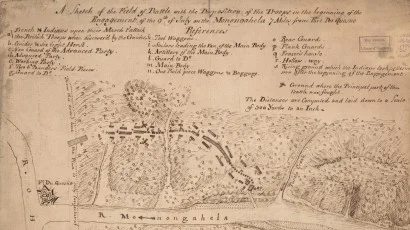 A Sketch of the Field of Battle with the Disposition of the Troops in the beginning of the
Engagement of the 9th of July on the Monongahela 7 Miles from Fort Du Quesne
References
a French & Indians upon their March Attack'd
b the British Troops when discover'd by the Guides
c Guides with Light Horse
d Van Guard of the Advanced Party
e Advanced Party
f Working Party
g Two Field Pieces
h Guard to Do
i Tool Waggons
k leading the Van of the Main Body
l Artillery of the Main Body
Guard to Do
m Main Body
n One Field piece Waggons & Baggage
o Rear Guard
p Flank Guards
r Hollow way
s Rising ground which the Indians
of after the beginning of the Engagement
Ground where the Principal part of the
Battle was fought
The Distances are Computed and laid down to a Scale
of 300 Yards to an Inch
Ft Du Quesne
R. OH
R. Monongahela